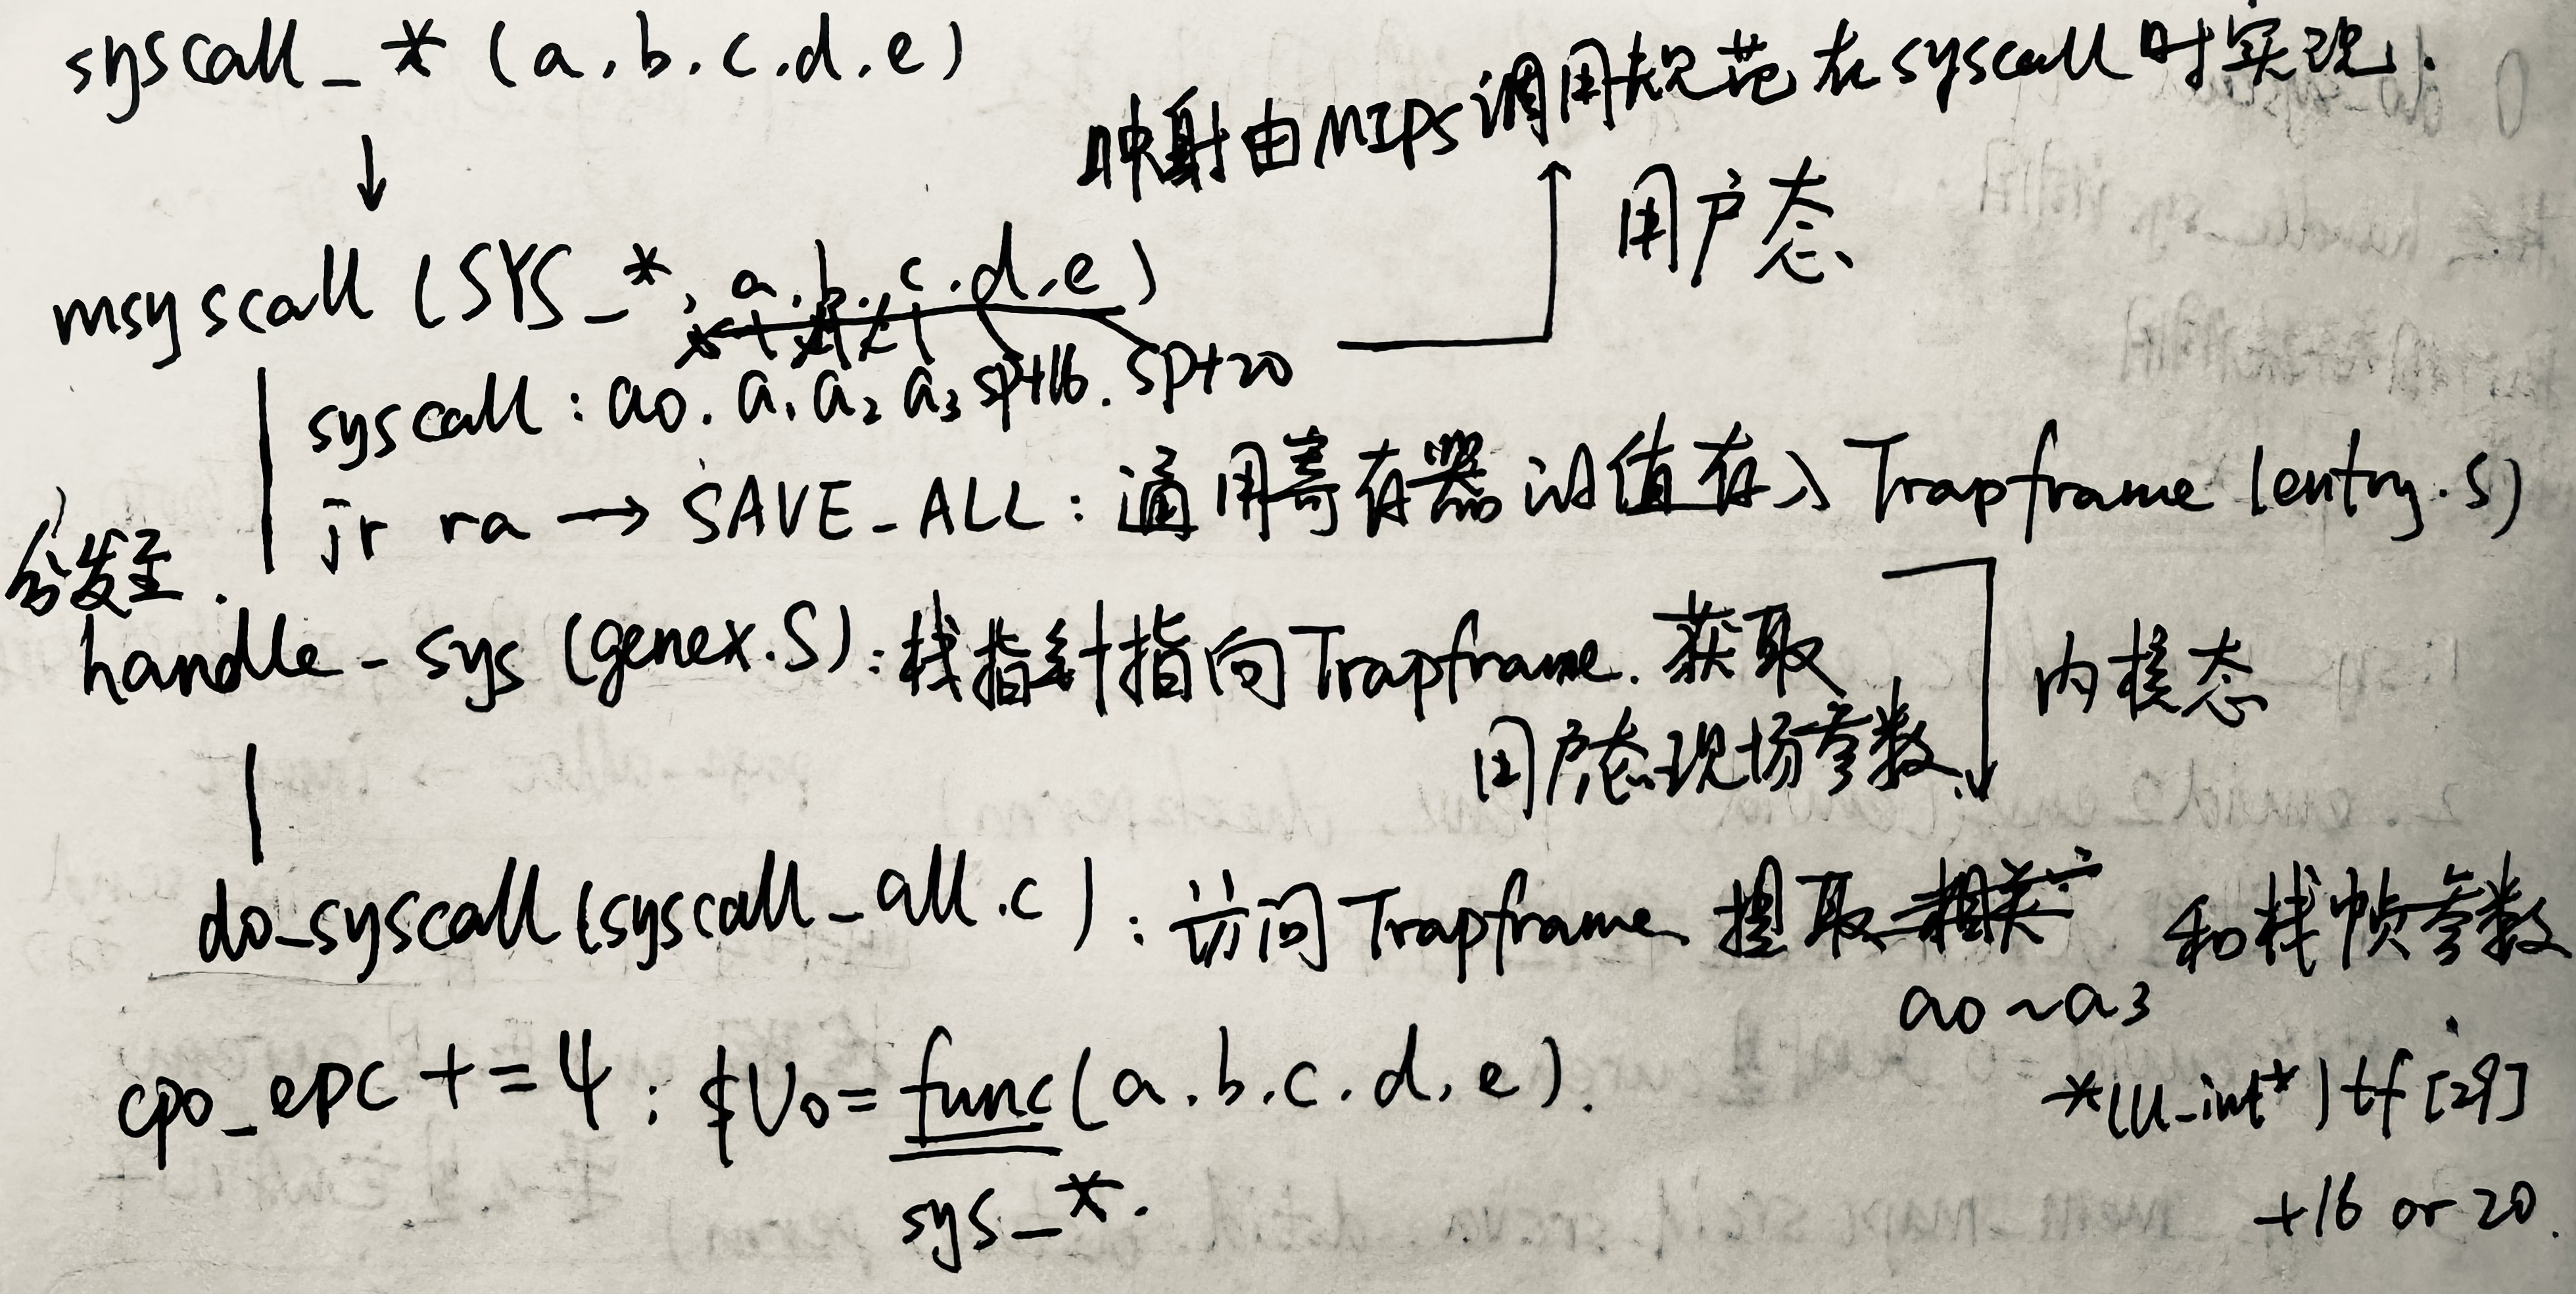 syscall_*(a.b.c.d.e)
映射由MIPS调用规范在syscall时实现.
↓
用户态
msyscall(SYS_*, a.b.c.d.e)
syscall: a0. a1 a2 a3 sp+16. sp+20
jr ra → SAVE_ALL: 通用寄存器的值存入 Trapframe (entry.S)
分发至.
handle-sys (genex.S): 栈指针指向Trapframe. 获取
用户态现场参数.
内核态
do_syscall(syscall_all.c): 访问Trapframe 提取 和栈帧参数
a0~a3
*(u_int*)tf[29]
+16 or 20.
cp0_epc += 4; $v0 = func(a.b.c.d.e).
sys_*.